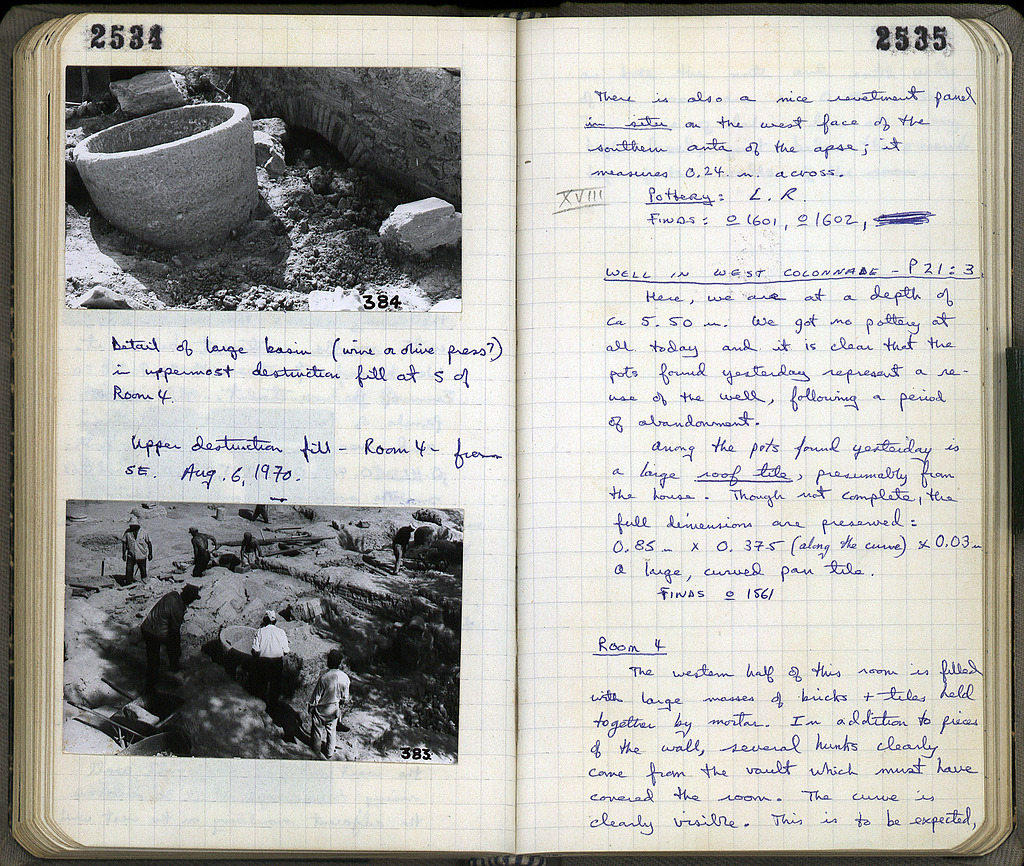 2534
384
Detail of large basin (wine or olive press?)
in uppermost destruction fill at S of
Room 4.
Upper destruction fill – Room 4 – from
SE. Aug. 6, 1970.
383
2535
There is also a nice revetment panel
in situ on the west face of the
southern anta of the apse; it
measures 0.24 m. across.
XVIII
Pottery: L. R.
FINDS: O 1601, O 1602,
WELL IN WEST COLONNADE – P 21 : 3.
Here, we are at a depth of
ca 5.50 m. We got no pottery at
all today and it is clear that the
pots found yesterday represent a re-
use of the well, following a period
of abandonment.
Among the pots found yesterday is
a large roof tile, presumably from
the house. Though not complete, the
full dimensions are preserved:
0.85 m x 0.375 (along the curve) x 0.03 m
a large, curved pan tile.
FINDS O 1561
Room 4
The western half of this room is filled
with large masses of bricks + tiles held
together by mortar. In addition to pieces
of the wall, several hunks clearly
come from the vault which must have
covered the room. The curve is
clearly visible. This is to be expected,